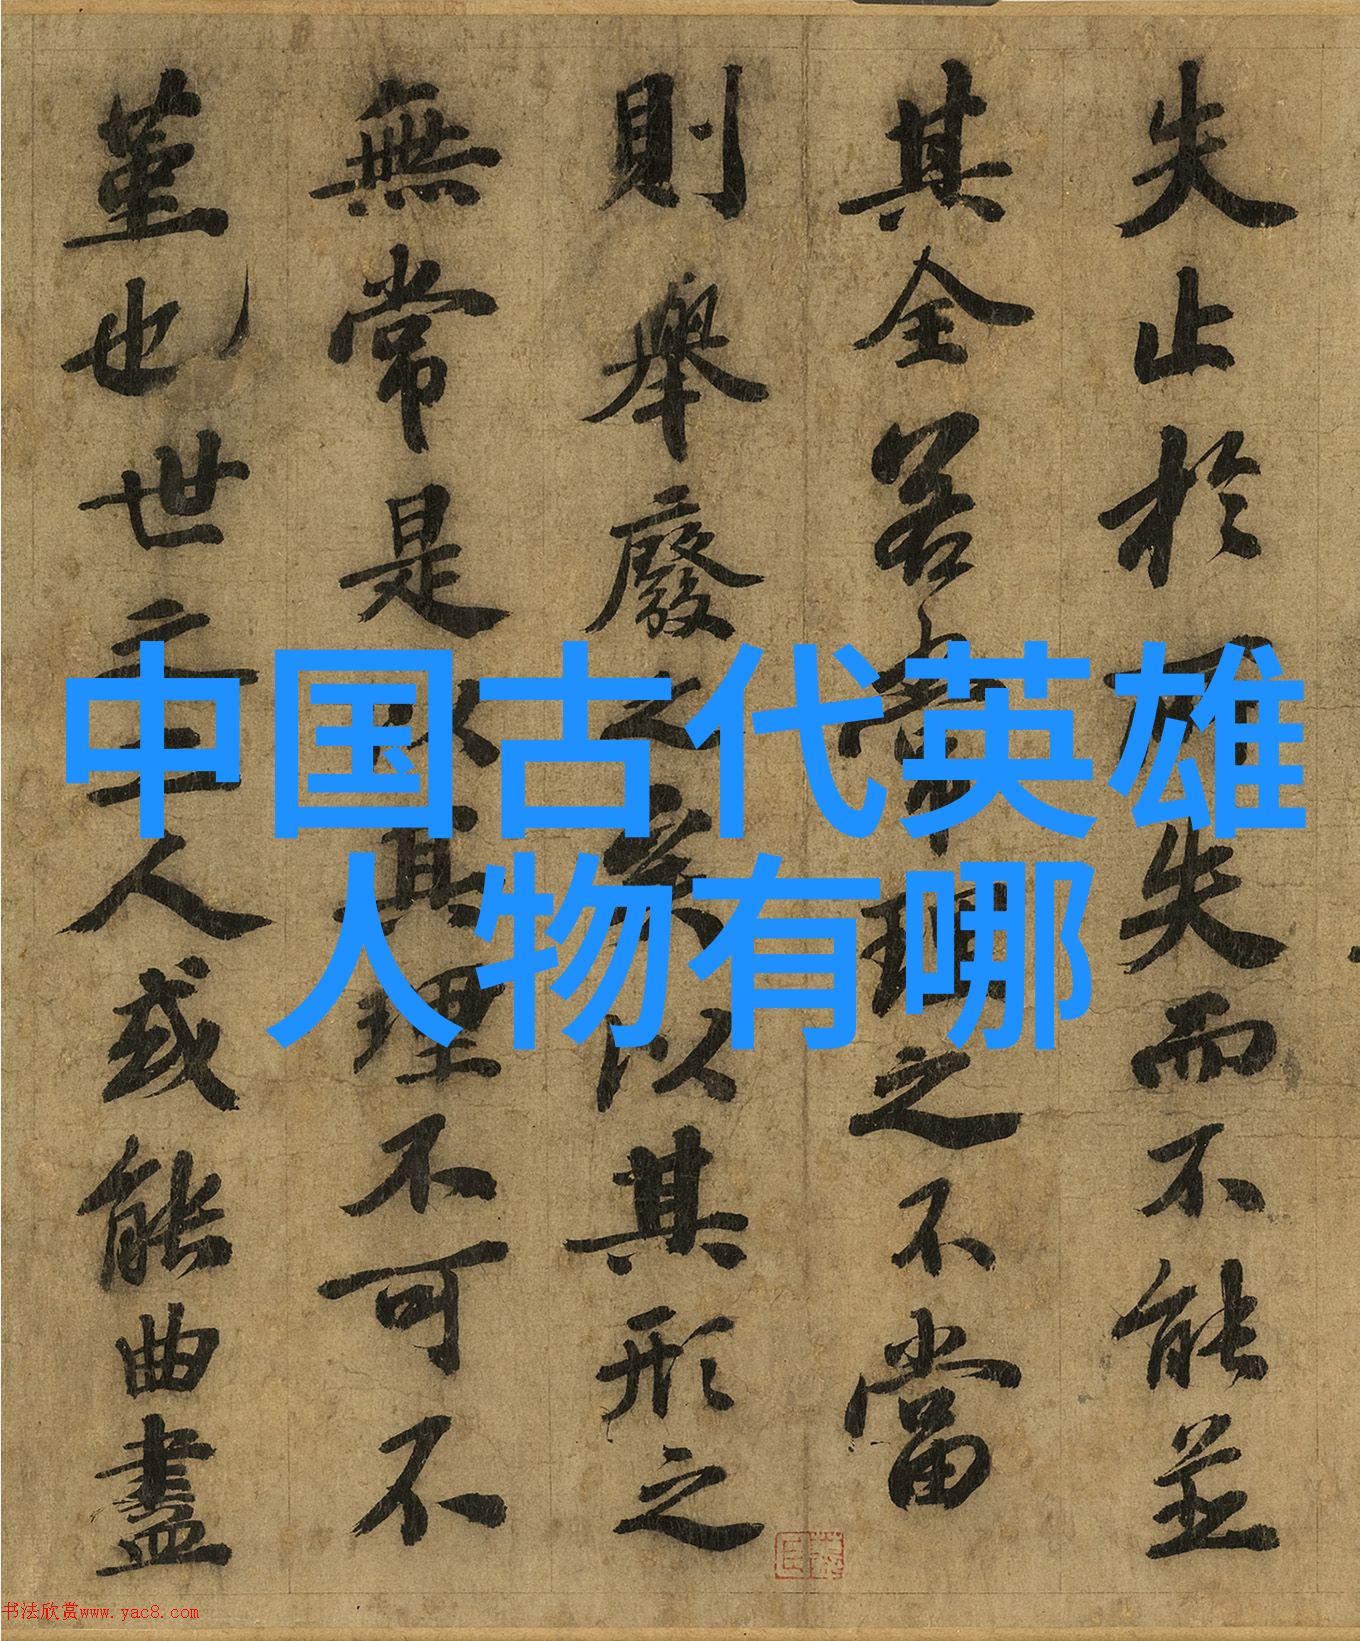 中国古代英雄
人物有哪
失止於失而不能並
其全若常理之不當
則舉廢之矣以其形之
無常是以其理不可不
堇也世之工人或能曲盡
书法欣赏www.yac8.com